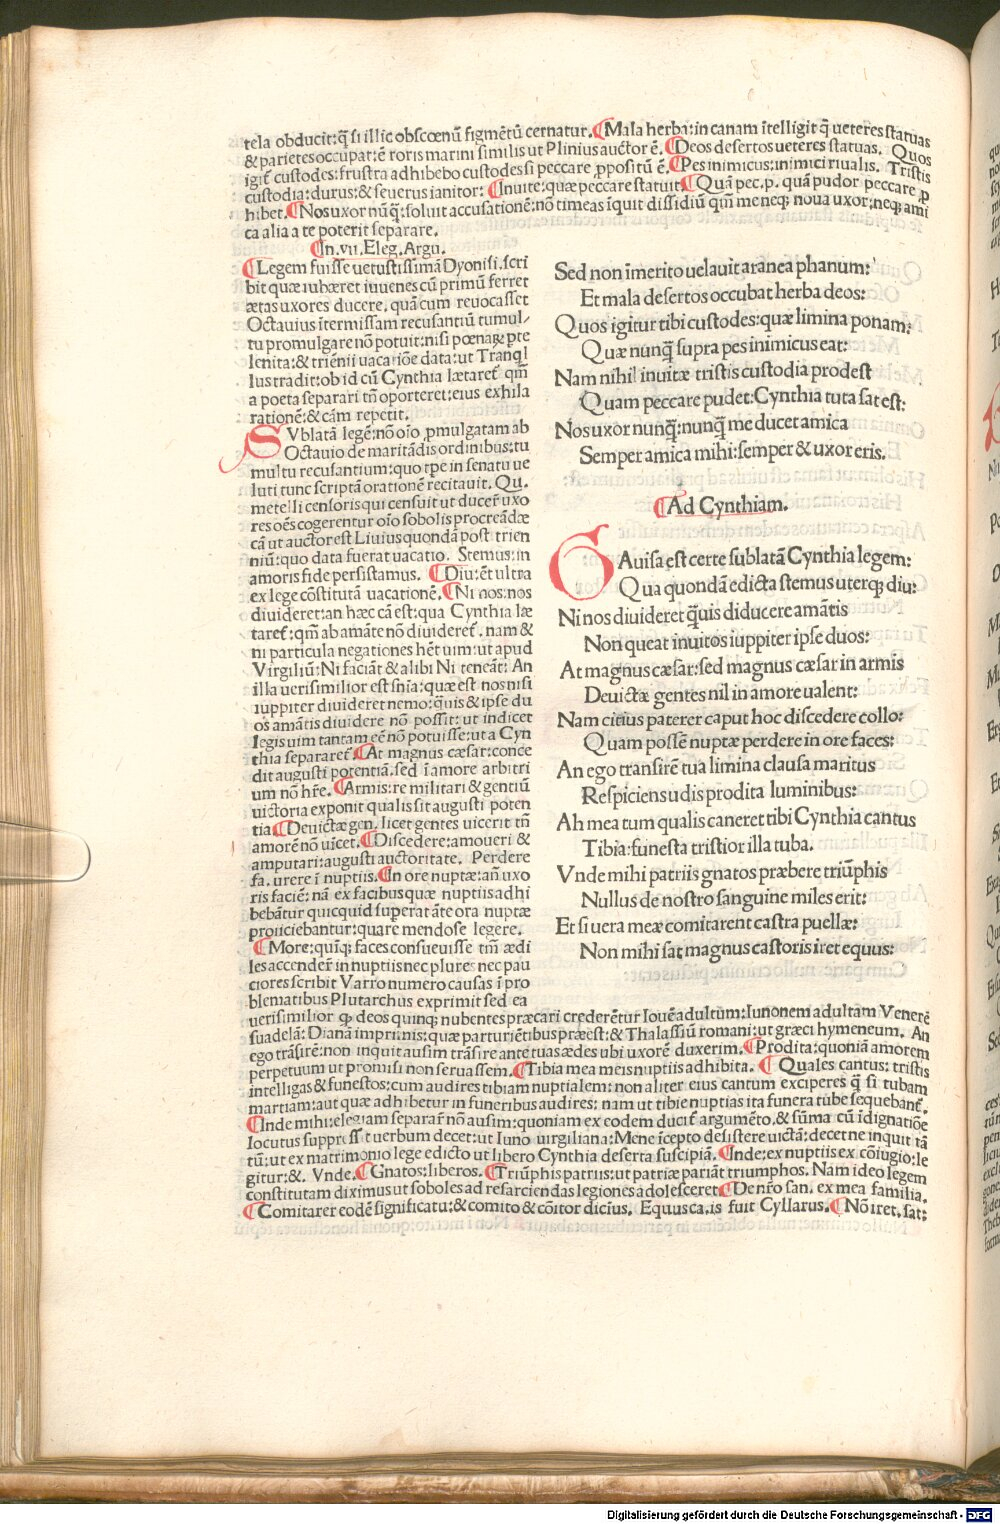 tela obducit: q̄ si illic obscœnū figmētū cernatur. ¶Mala herba: in canam ītelligit q̄ ueteres statuas
& parietes occupat: ē roris marini similis ut Plinius auctor ē. ¶Deos desertos ueteres statuas. Quos
igit̄ custodes: frustra adhibebo custodes si peccare ꝓpositū ē. ¶Pes inimicus: inimici riualis. Tristis
custodia: durus: & seuerus ianitor: ¶Inuite: quæ peccare statuit ¶Quā pec. p. quā pudor peccare ꝓ
hibet. ¶Nos uxor nūq̄: soluit accusationē: nō timeas īquit dissidiū qm̄ me neqꝫ noua uxor: neqꝫ ami
ca alia a te poterit separare.
¶In. vii. Eleg. Argu.
¶Legem fuisse uetustissimā Dyonisi. scri
bit quæ iubæret iuuenes cū primū ferret
ætas uxores ducere, quā cum reuocasset
Octauius ītermissam recusantiū tumul/
tu promulgare nō potuit: nisi pœnaꝝ pte
lenita: & triēnii uacatiōe data: ut Tranql
lus tradit: ob id cū Cynthia lætaret̄ qm̄
a poeta separari tn̄ oporteret: eius exhila
rationē: & cām repetit.
SVblatā legē: nō oīo ꝓmulgatam ab
Octauio de maritādis ordinibus: tu
multu recusantium: quo tpe in senatu ue
luti tunc scriptā orationē recitauit. Qu.
metelli censoris qui censuit ut ducer̄ uxo
res oēs cogerentur oīo sobolis procreādæ
cā ut auctor est Liuius quondā post trien
niū: quo data fuerat uacatio. Stemus: in
amoris fide persistamus. ¶Diu: ēt ultra
ex lege cōstitutā uacationē. ¶Ni nos: nos
diuideret: an hæc cā est: qua Cynthia læ
taret̄: qm̄ ab amāte nō diuideret̄. nam &
ni particula negationes hēt uim: ut apud
Virgiliū: Ni faciāt & alibi Ni teneāt: An
illa uerisimilior est snīa: quæ est nos nisi
iuppiter diuideret nemo: q̄uis & ipse du
os amātis diuidere nō possit: ut indicet
legis uim tantam eē nō potuisse: ut a Cyn
thia separaret̄ ¶At magnus cæsar: conce
dit augusti potentiā. sed ī amore arbitri
um nō hr̄e. ¶Armis: re militari & gentiū
uictoria exponit qualis sit augusti poten
tia ¶Deuictæ gen. licet gentes uicerit tn̄
amorē nō uīcet. ¶Discedere: amoueri &
amputari: augusti auctoritate. Perdere
fa. urere ī nuptiis. ¶In ore nuptæ: an̄ uxo
ris faciē: nā ex facibus quæ nuptiis adhi
bebātur quicquid superat āte ora nuptæ
proiiciebantur: quare mendose legere.
¶More: quīqꝫ faces consueuisse tm̄ ædi
les accender̄ in nuptiis nec plures nec pau
ciores scribit Varro numero causas ī pro
blematibus Plutarchus exprimit sed ea
uerisimilior ꝙ deos quinqꝫ nubentes præcari crederētur Iouē adultūm: Iunonem adultam Venerē
suadelā: Dianā imprimis: quæ parturiētibus præest: & Thalassiū romani: ut græci hymeneum. An
ego trāsirē: non inquit ausim trāsire ante tuas ædes ubi uxorē duxerim. ¶Prodita: quoniā amorem
perpetuum ut promisi non seruassem. ¶Tibia mea meis nuptiis adhibita. ¶ Quales cantus: tristis
intelligas & funestos: cum audires tibiam nuptialem: non aliter eius cantum exciperes q̄ si tubam
martiam: aut quæ adhibetur in funeribus audires: nam ut tibie nuptias ita funera tube sequebant̄.
¶Inde mihi: elegiam separar̄ nō ausim: quoniam ex eodem ducit̄ argumēto, & sūma cū īdignatiōe
locutus suppressit uerbum decet: ut Iuno uirgiliana: Mene īcepto desistere uictā: decet ne inquit tā
tū: ut ex matrimonio lege edicto ut libero Cynthia deserta suscipiā. ¶Inde: ex nuptiis ex cōiugio: le
gitur: &. Vnde. ¶Gnatos: liberos. ¶Triūphis patriis: ut patriæ pariāt triumphos. Nam ideo legem
constitutam diximus ut soboles ad resarciendas legiones adolesceret ¶De nr̄o san. ex mea familia.
¶Comitarer eodē significatu: & comito & cōitor dicius. Equus ca. is fuit Cyllarus. ¶Nō iret. sat:
Sed non īmerito uelauit aranea phanum:
Et mala desertos occubat herba deos:
Quos igitur tibi custodes: quæ limina ponam:
Quæ nunq̄ supra pes inimicus eat:
Nam nihil inuitæ tristis custodia prodest
Quam peccare pudet: Cynthia tuta sat est:
Nos uxor nunq̄: nunq̄ me ducet amica
Semper amica mihi: semper & uxor eris.
¶Ad Cynthiam.
GAuisa est certe sublatā Cynthia legem:
Qua quondā edicta stemus uterqꝫ diu:
Ni nos diuideret q̄uis diducere amātis
Non queat inuitos iuppiter ipse duos:
At magnus cæsar: sed magnus cæsar in armis
Deuictæ gentes nil in amore ualent:
Nam citius paterer caput hoc discedere collo:
Quam possē nuptæ perdere in ore faces:
An ego transirē tua limina clausa maritus
Respiciens udis prodita luminibus:
Ah mea tum qualis caneret tibi Cynthia cantus
Tibia: funesta tristior illa tuba.
Vnde mihi patriis gnatos præbere triūphis
Nullus de nostro sanguine miles erit:
Et si uera meæ comitarent castra puellæ:
Non mihi sat magnus castoris iret equus:
Digitalisierung gefördert durch die Deutsche Forschungsgemeinschaft - DFG